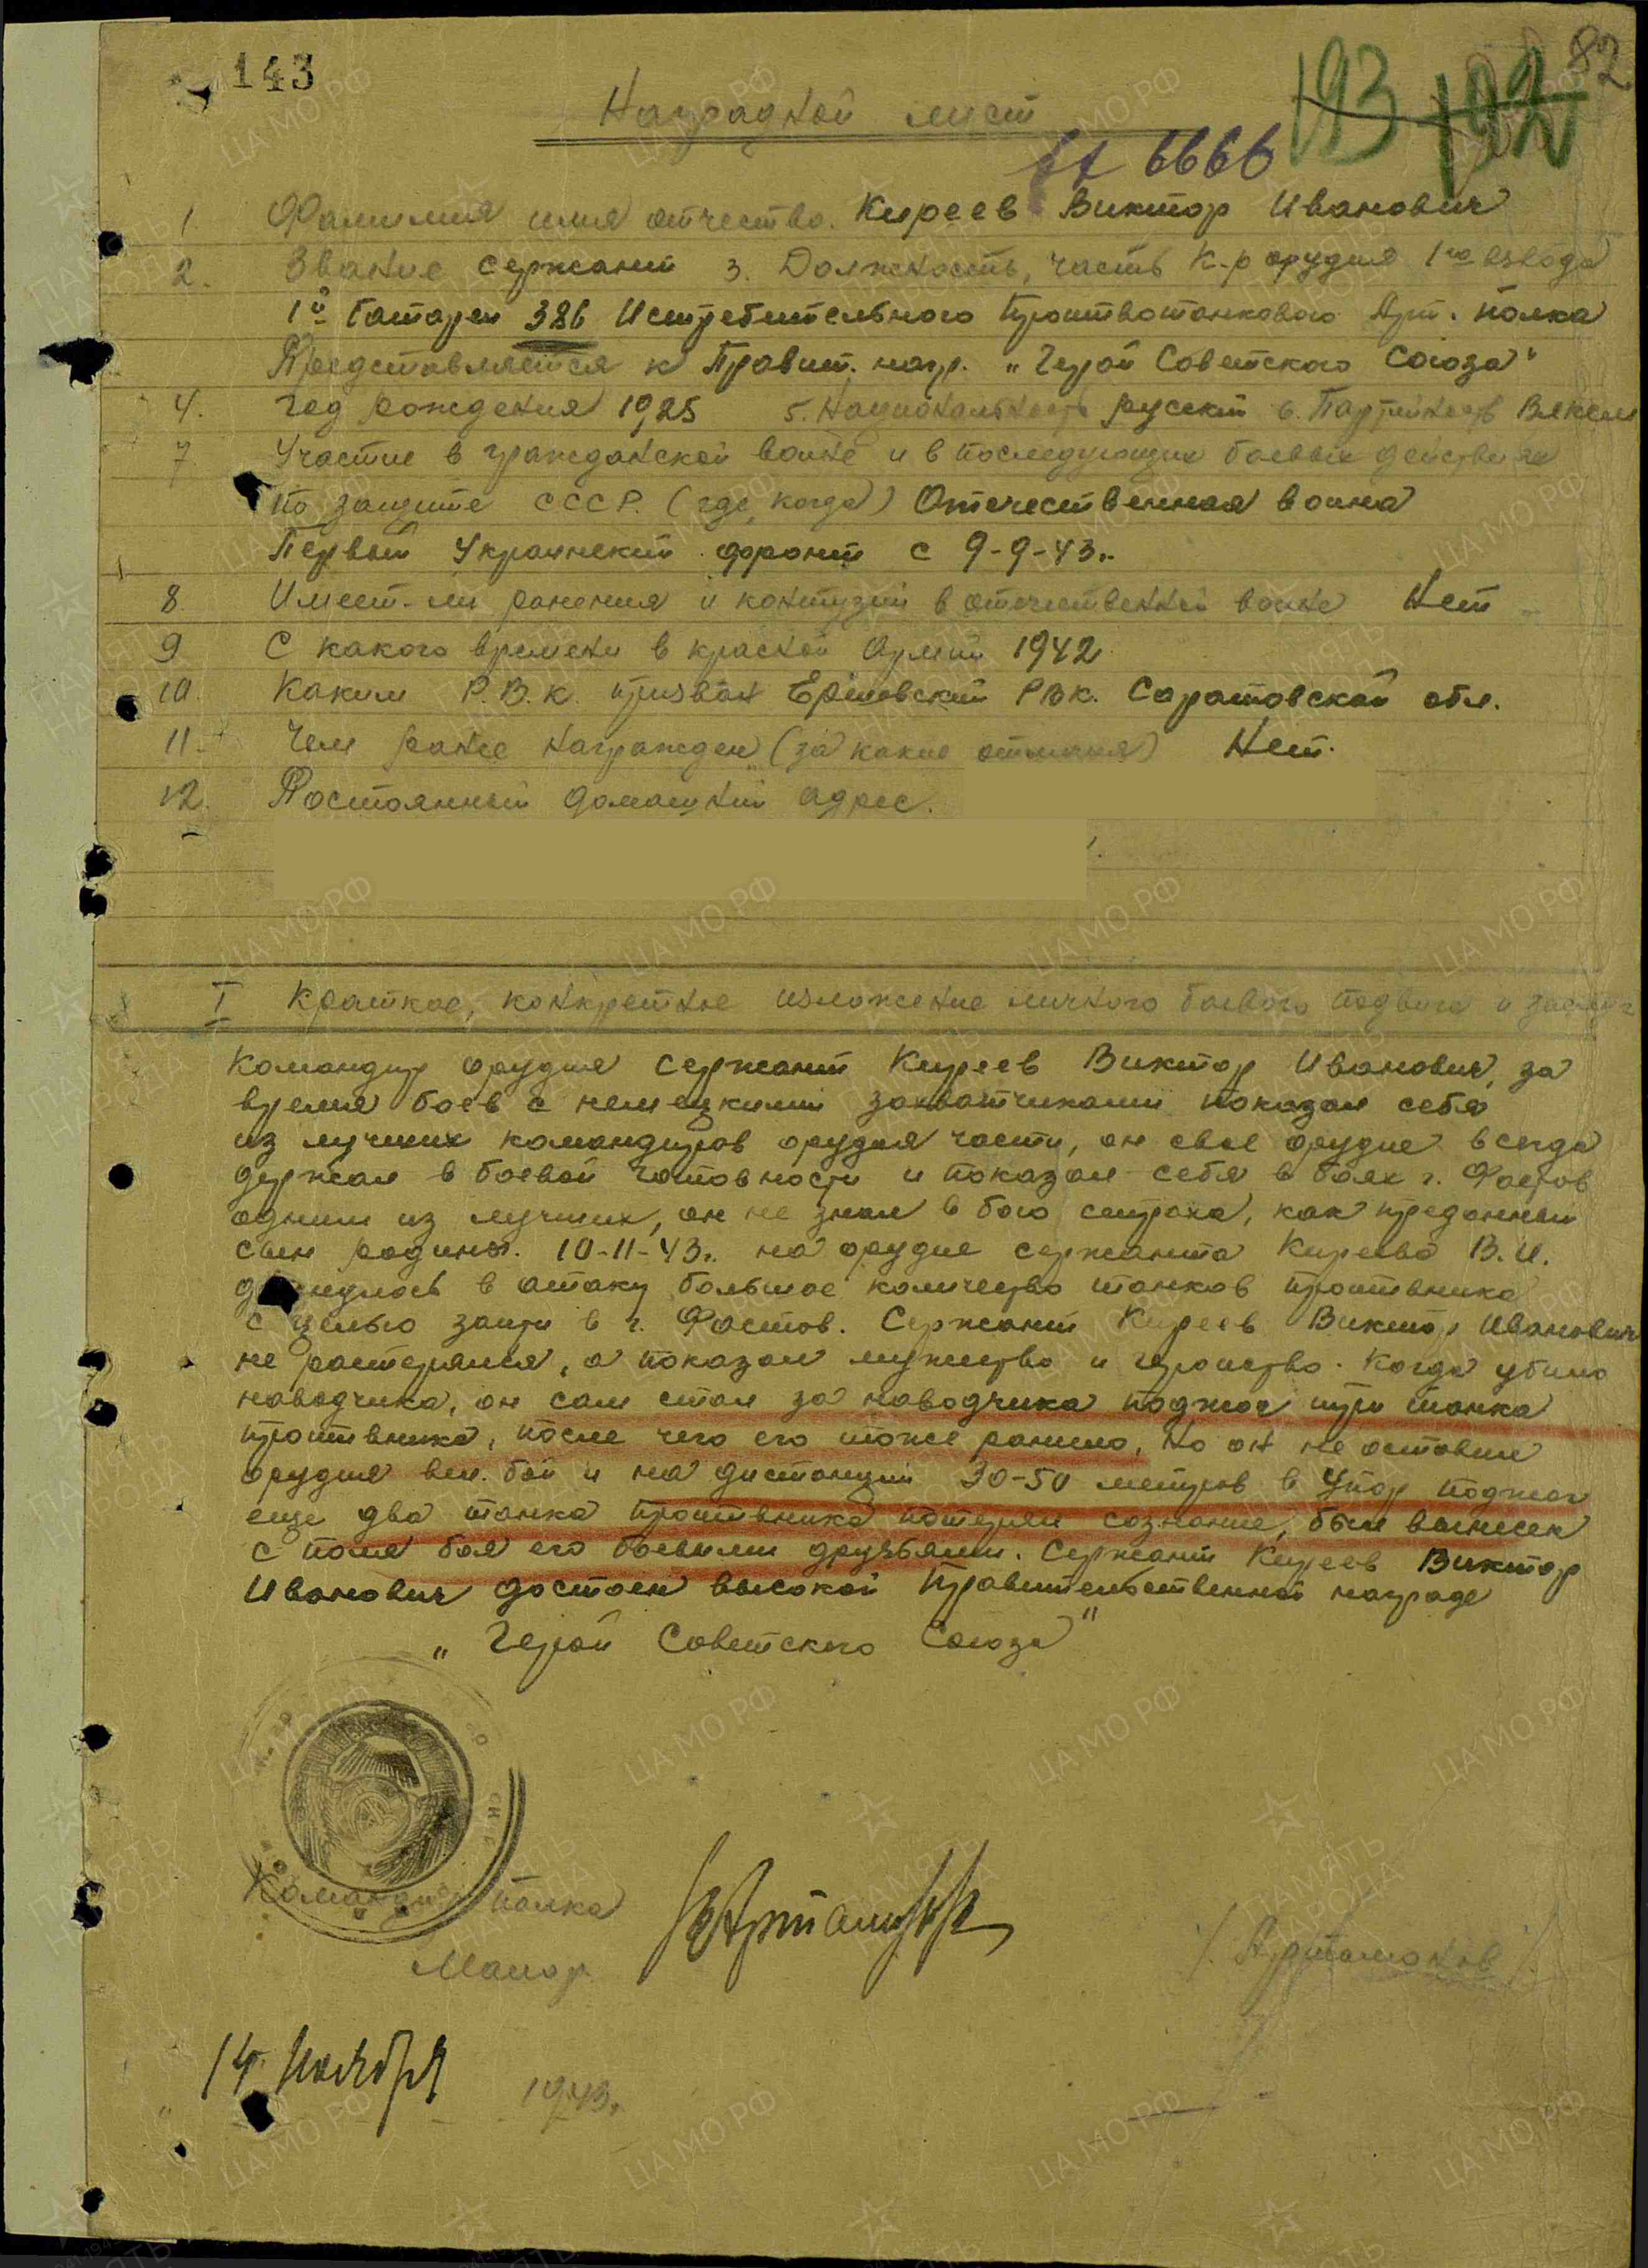 143
82
193 192
Наградной лист
6666
1. Фамилия имя отчество. Киреев Виктор Иванович
2. Звание сержант 3. Должность, часть К-р орудия 1го взвода
1й батареи 386 Истребительного Противотанкового Арт. полка
Представляется к Правит. нагр. "Герой Советского Союза"
4. Год рождения 1925 5. Национальность русский 6. Партийность Влксм
7 Участие в гражданской войне и в последующих боевых действиях
по защите СССР. (где, когда) Отечественная война
Первый Украинский фронт с 9-9-43г.
8. Имеет-ли ранения и контузии в отечественной войне Нет
9 С какого времени в красной Армии 1942
10. Каким Р.В.К. призван Ершовский РВК. Саратовской обл.
11. Чем ранее награжден (за какие отличия) Нет.
12. Постоянный домашний адрес.
I Краткое, конкретное изложение личного боевого подвига и заслуг
Командир орудия сержант Киреев Виктор Иванович, за
время боев с немецкими захватчиками показал себя
из лучших командиров орудия части, он свое орудие всегда
держал в боевой готовности и показал себя в боях г. Фастов
одним из лучших, он не знал в бою страха, как преданный
сын родины. 10-11-43г. на орудие сержанта Киреева В.И.
двинулось в атаку большое количество танков противника
с целью зайти в г. Фастов. Сержант Киреев Виктор Иванович
не растерялся, а показал мужество и геройство. Когда убило
наводчика, он сам стал за наводчика поджог три танка
противника, после чего его тоже ранило, но он не оставил
орудия вел бой и на дистанции 30-50 метров в упор поджог
еще два танка противника потеряв сознание, был вынесен
с поля боя его боевыми друзьями. Сержант Киреев Виктор
Иванович достоен высокой Правительственной награде
"Герой Советского Союза"
Командир полка
Майор
/ Артамонов /
14 ноября 1943г.
ПАМЯТЬ НАРОДА
ЦА МО РФ